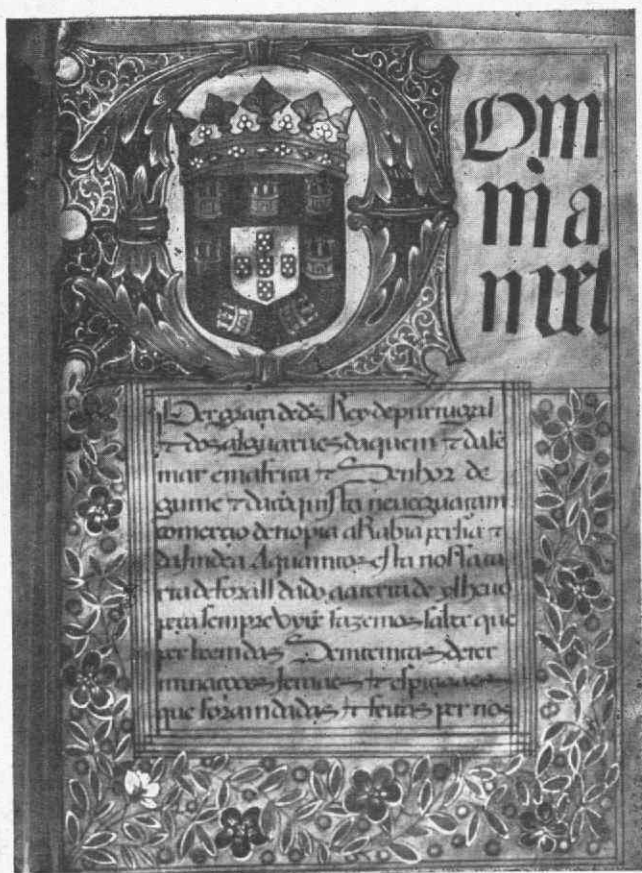 Dom
ma
nuel
Per graça de ds Rey de purtugal
⁊ dos alguarues daquem ⁊ dalẽ
mar em africa ⁊ Senhor de
guine ⁊ da cõquista neueguaçam
comercio detiopia aRabia persia ⁊
da India A quamtos esta nossa ca
rta de forall dado aa terra de
pera sempre virẽ fazemos saber que
per bem das Semtenças deter
minações geraes ⁊ espiçiaes
que foram dadas ⁊ feitas per nos